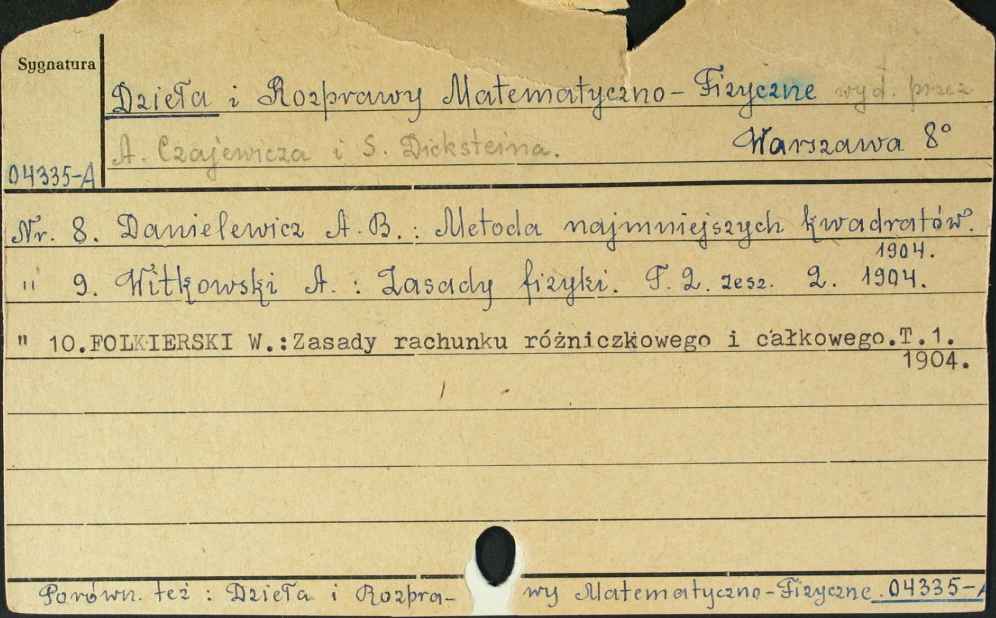 Sygnatura
Dzieła i Rozprawy Matematyczno-Fizyczne wyd. przez
A. Czajewicza i S. Dicksteina. Warszawa 8°
04335-A
Nr. 8. Danielewicz A. B.: Metoda najmniejszych kwadratów.
1904.
" 9. Witkowski A.: Zasady fizyki. T. 2. zesz. 2. 1904.
" 10.FOLKIERSKI W.:Zasady rachunku różniczkowego i całkowego.T.1.
1904.
Porówn. też: Dzieła i Rozpra-wy Matematyczno-Fizyczne. 04335-A